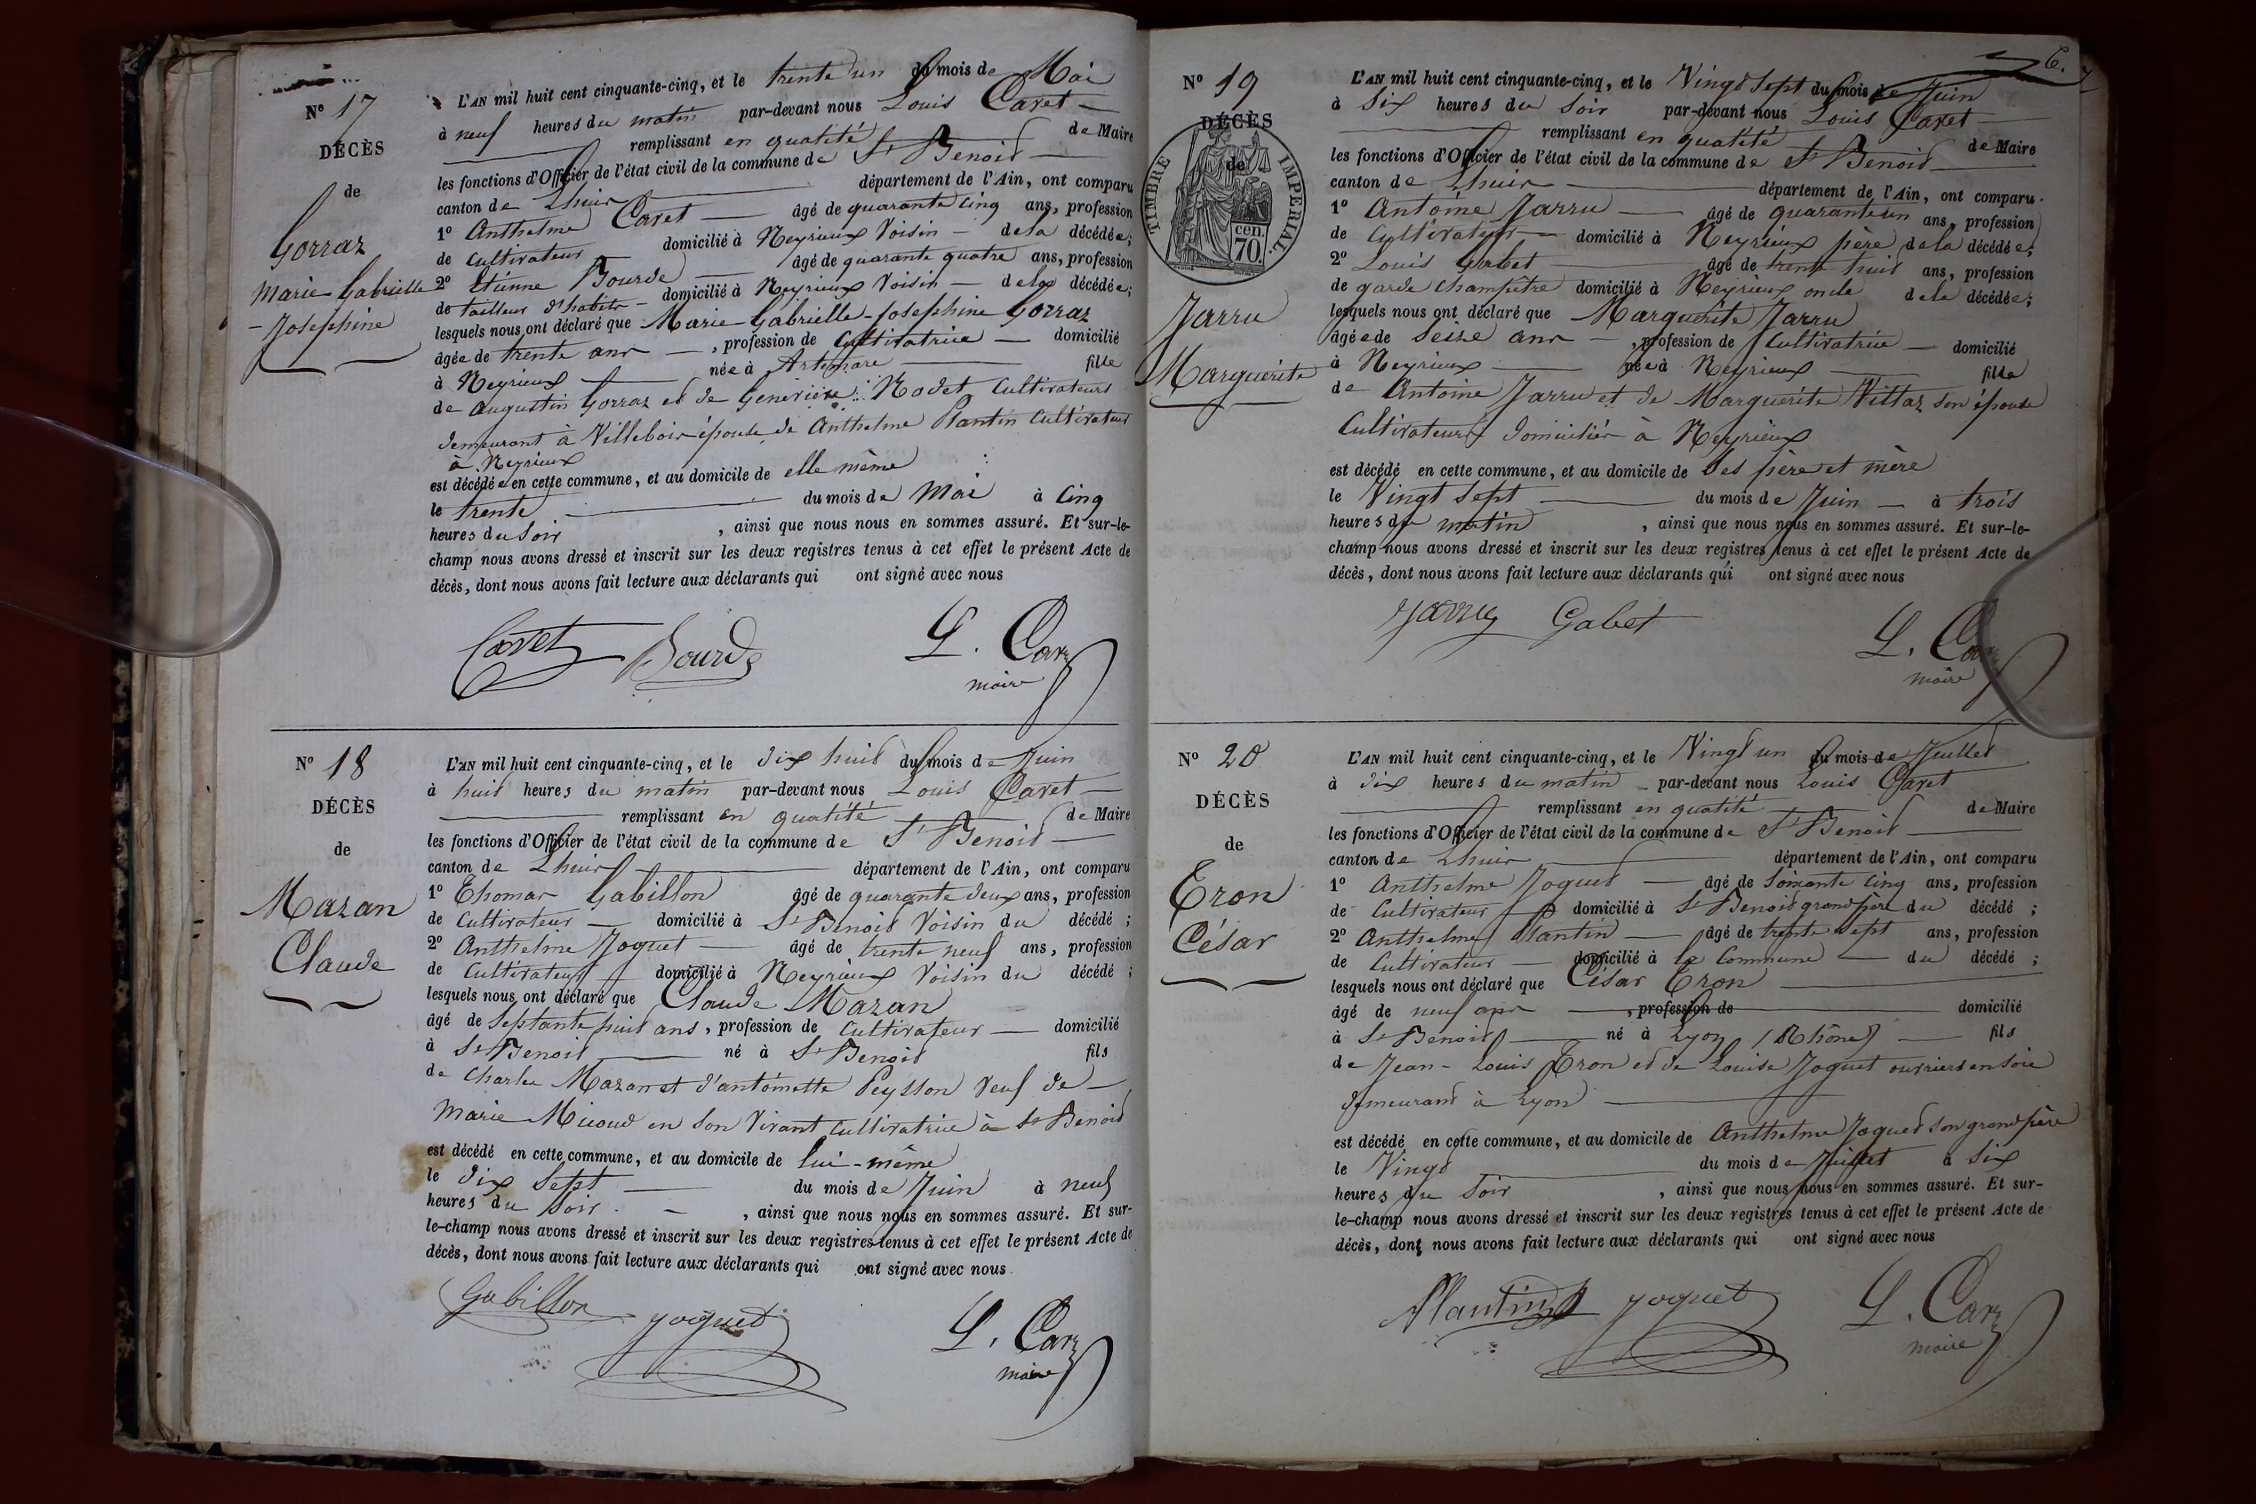 N° 17
DÉCÈS
de
Gorraz
Marie Gabrielle
- Josephine
L'AN mil huit cent cinquante-cinq, et le trente un du mois de Mai
à neuf heures du matin par-devant nous Louis Caret
remplissant en qualité de Maire
les fonctions d'Officier de l'état civil de la commune de St Benoid
canton de Lhuis département de l'Ain, ont comparu
1° Anthelme Caret âgé de quarante cinq ans, profession
de cultivateur domicilié à Neyrieux Voisin de la décédée;
2° Etienne Bourde âgé de quarante quatre ans, profession
de tailleur d'habits domicilié à Neyrieux Voisin de la décédée;
lesquels nous ont déclaré que Marie-Gabrielle-Josephine Gorraz
âgée de trente ans, profession de Cultivatrice domicilié
à Neyrieux née à Artemare fille
de Augustin Gorraz et de Genevieve Rodet Cultivateurs
demeurant à Villebois épouse de Anthelme Plantin Cultivateur
à Neyrieux
est décédée en cette commune, et au domicile de elle même
le trente du mois de Mai à Cinq
heures du Soir, ainsi que nous nous en sommes assuré. Et sur-le-
champ nous avons dressé et inscrit sur les deux registres tenus à cet effet le présent Acte de
décès, dont nous avons fait lecture aux déclarants qui ont signé avec nous
Caret Bourde L. Car
maire
N° 18
DÉCÈS
de
Mazan
Claude
L'AN mil huit cent cinquante-cinq, et le dix huit du mois de Juin
à huit heures du matin par-devant nous Louis Caret
remplissant en qualité de Maire
les fonctions d'Officier de l'état civil de la commune de St Benoid
canton de Lhuis département de l'Ain, ont comparu
1° Thomas Gabillon âgé de quarante deux ans, profession
de Cultivateur domicilié à St Benoid Voisin du décédé;
2° Anthelme Joguet âgé de trente neuf ans, profession
de Cultivateur domicilié à Neyrieux Voisin du décédé;
lesquels nous ont déclaré que Claude Mazan
âgé de Septante huit ans, profession de Cultivateur domicilié
à St Benoid né à St Benoid fils
de Charles Mazan et d'antoinette Peysson Veuf de
Marie Micoud en son Vivant Cultivatrice à St Benoid
est décédé en cette commune, et au domicile de lui-même
le dix Sept du mois de Juin à neuf
heures du Soir, ainsi que nous nous en sommes assuré. Et sur-
le-champ nous avons dressé et inscrit sur les deux registres tenus à cet effet le présent Acte de
décès, dont nous avons fait lecture aux déclarants qui ont signé avec nous
Gabillon Joguet L. Car
maire
6.
N° 19
DÉCÈS
de
TIMBRE IMPERIAL.
70 cen.
Jarru
Marguerite
L'AN mil huit cent cinquante-cinq, et le Vingt Sept du mois de Juin
à Six heures du Soir par-devant nous Louis Caret
remplissant en qualité de Maire
les fonctions d'Officier de l'état civil de la commune de St Benoid
canton de Lhuis département de l'Ain, ont comparu
1° Antoine Jarru âgé de quarante un ans, profession
de Cultivateur domicilié à Neyrieux père de la décédée;
2° Louis Gabet âgé de trente huit ans, profession
de garde Champêtre domicilié à Neyrieux oncle de la décédée;
lesquels nous ont déclaré que Marguerite Jarru
âgée de Seize ans, profession de Cultivatrice domicilié
à Neyrieux née à Neyrieux fille
de Antoine Jarru et de Marguerite Vittaz son épouse
Cultivateurs domiciliés à Neyrieux
est décédé en cette commune, et au domicile de Ses père et mère
le Vingt Sept du mois de Juin à trois
heures du matin, ainsi que nous nous en sommes assuré. Et sur-le-
champ nous avons dressé et inscrit sur les deux registres tenus à cet effet le présent Acte de
décès, dont nous avons fait lecture aux déclarants qui ont signé avec nous
Jarru Gabet L. Car
maire
N° 20
DÉCÈS
de
Eron
César
L'AN mil huit cent cinquante-cinq, et le Vingt un du mois de Juillet
à dix heures du matin par-devant nous Louis Caret
remplissant en qualité de Maire
les fonctions d'Officier de l'état civil de la commune de St Benoid
canton de Lhuis département de l'Ain, ont comparu
1° Anthelme Joguet âgé de Soixante Cinq ans, profession
de Cultivateur domicilié à St Benoid grand père du décédé;
2° Anthelme Plantin âgé de trente Sept ans, profession
de Cultivateur domicilié à la Commune du décédé;
lesquels nous ont déclaré que César Eron
âgé de neuf ans, profession de domicilié
à St Benoid né à Lyon (Rhône) fils
de Jean-Louis Eron et de Louise Joguet ouvriers en Soie
demeurant à Lyon
est décédé en cette commune, et au domicile de Anthelme Joguet Son grand père
le Vingt du mois de Juillet à Six
heures du Soir, ainsi que nous nous en sommes assuré. Et sur-
le-champ nous avons dressé et inscrit sur les deux registres tenus à cet effet le présent Acte de
décès, dont nous avons fait lecture aux déclarants qui ont signé avec nous
Plantin Joguet L. Car
maire